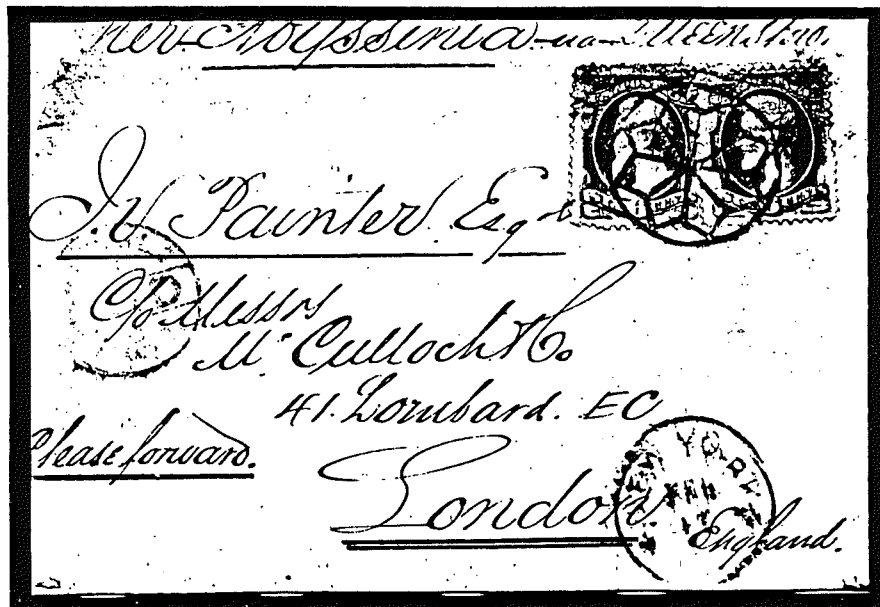 per Abyssinia via Queenstown.
J. V. Painter Esqr
C/o Messrs
Mc Culloch & Co.
41. Lombard. EC
Please forward.
London
England.
NEW YORK
FEB